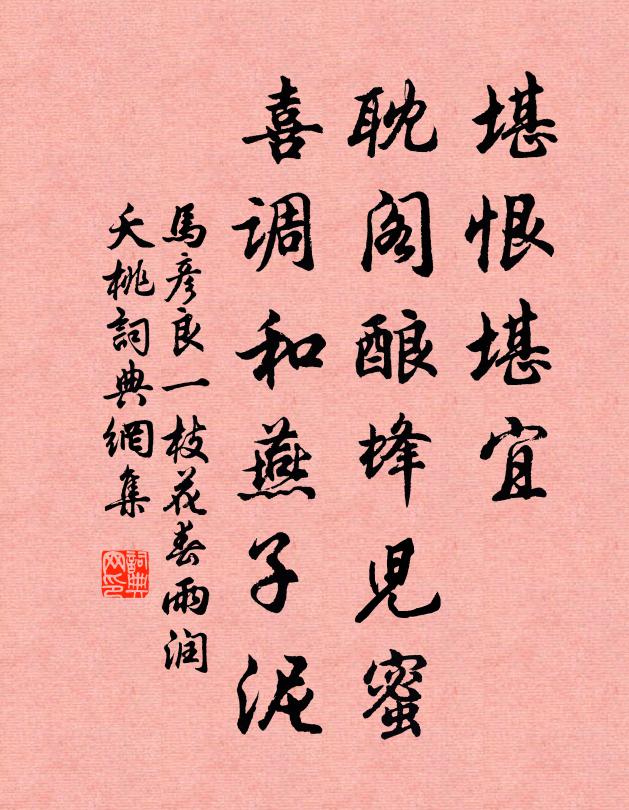 堪恨堪宜
耽阁酿蜂児蜜
喜调和燕子泥
馬彦良一枝花春雨润
夭桃詞典網集
詞典网印